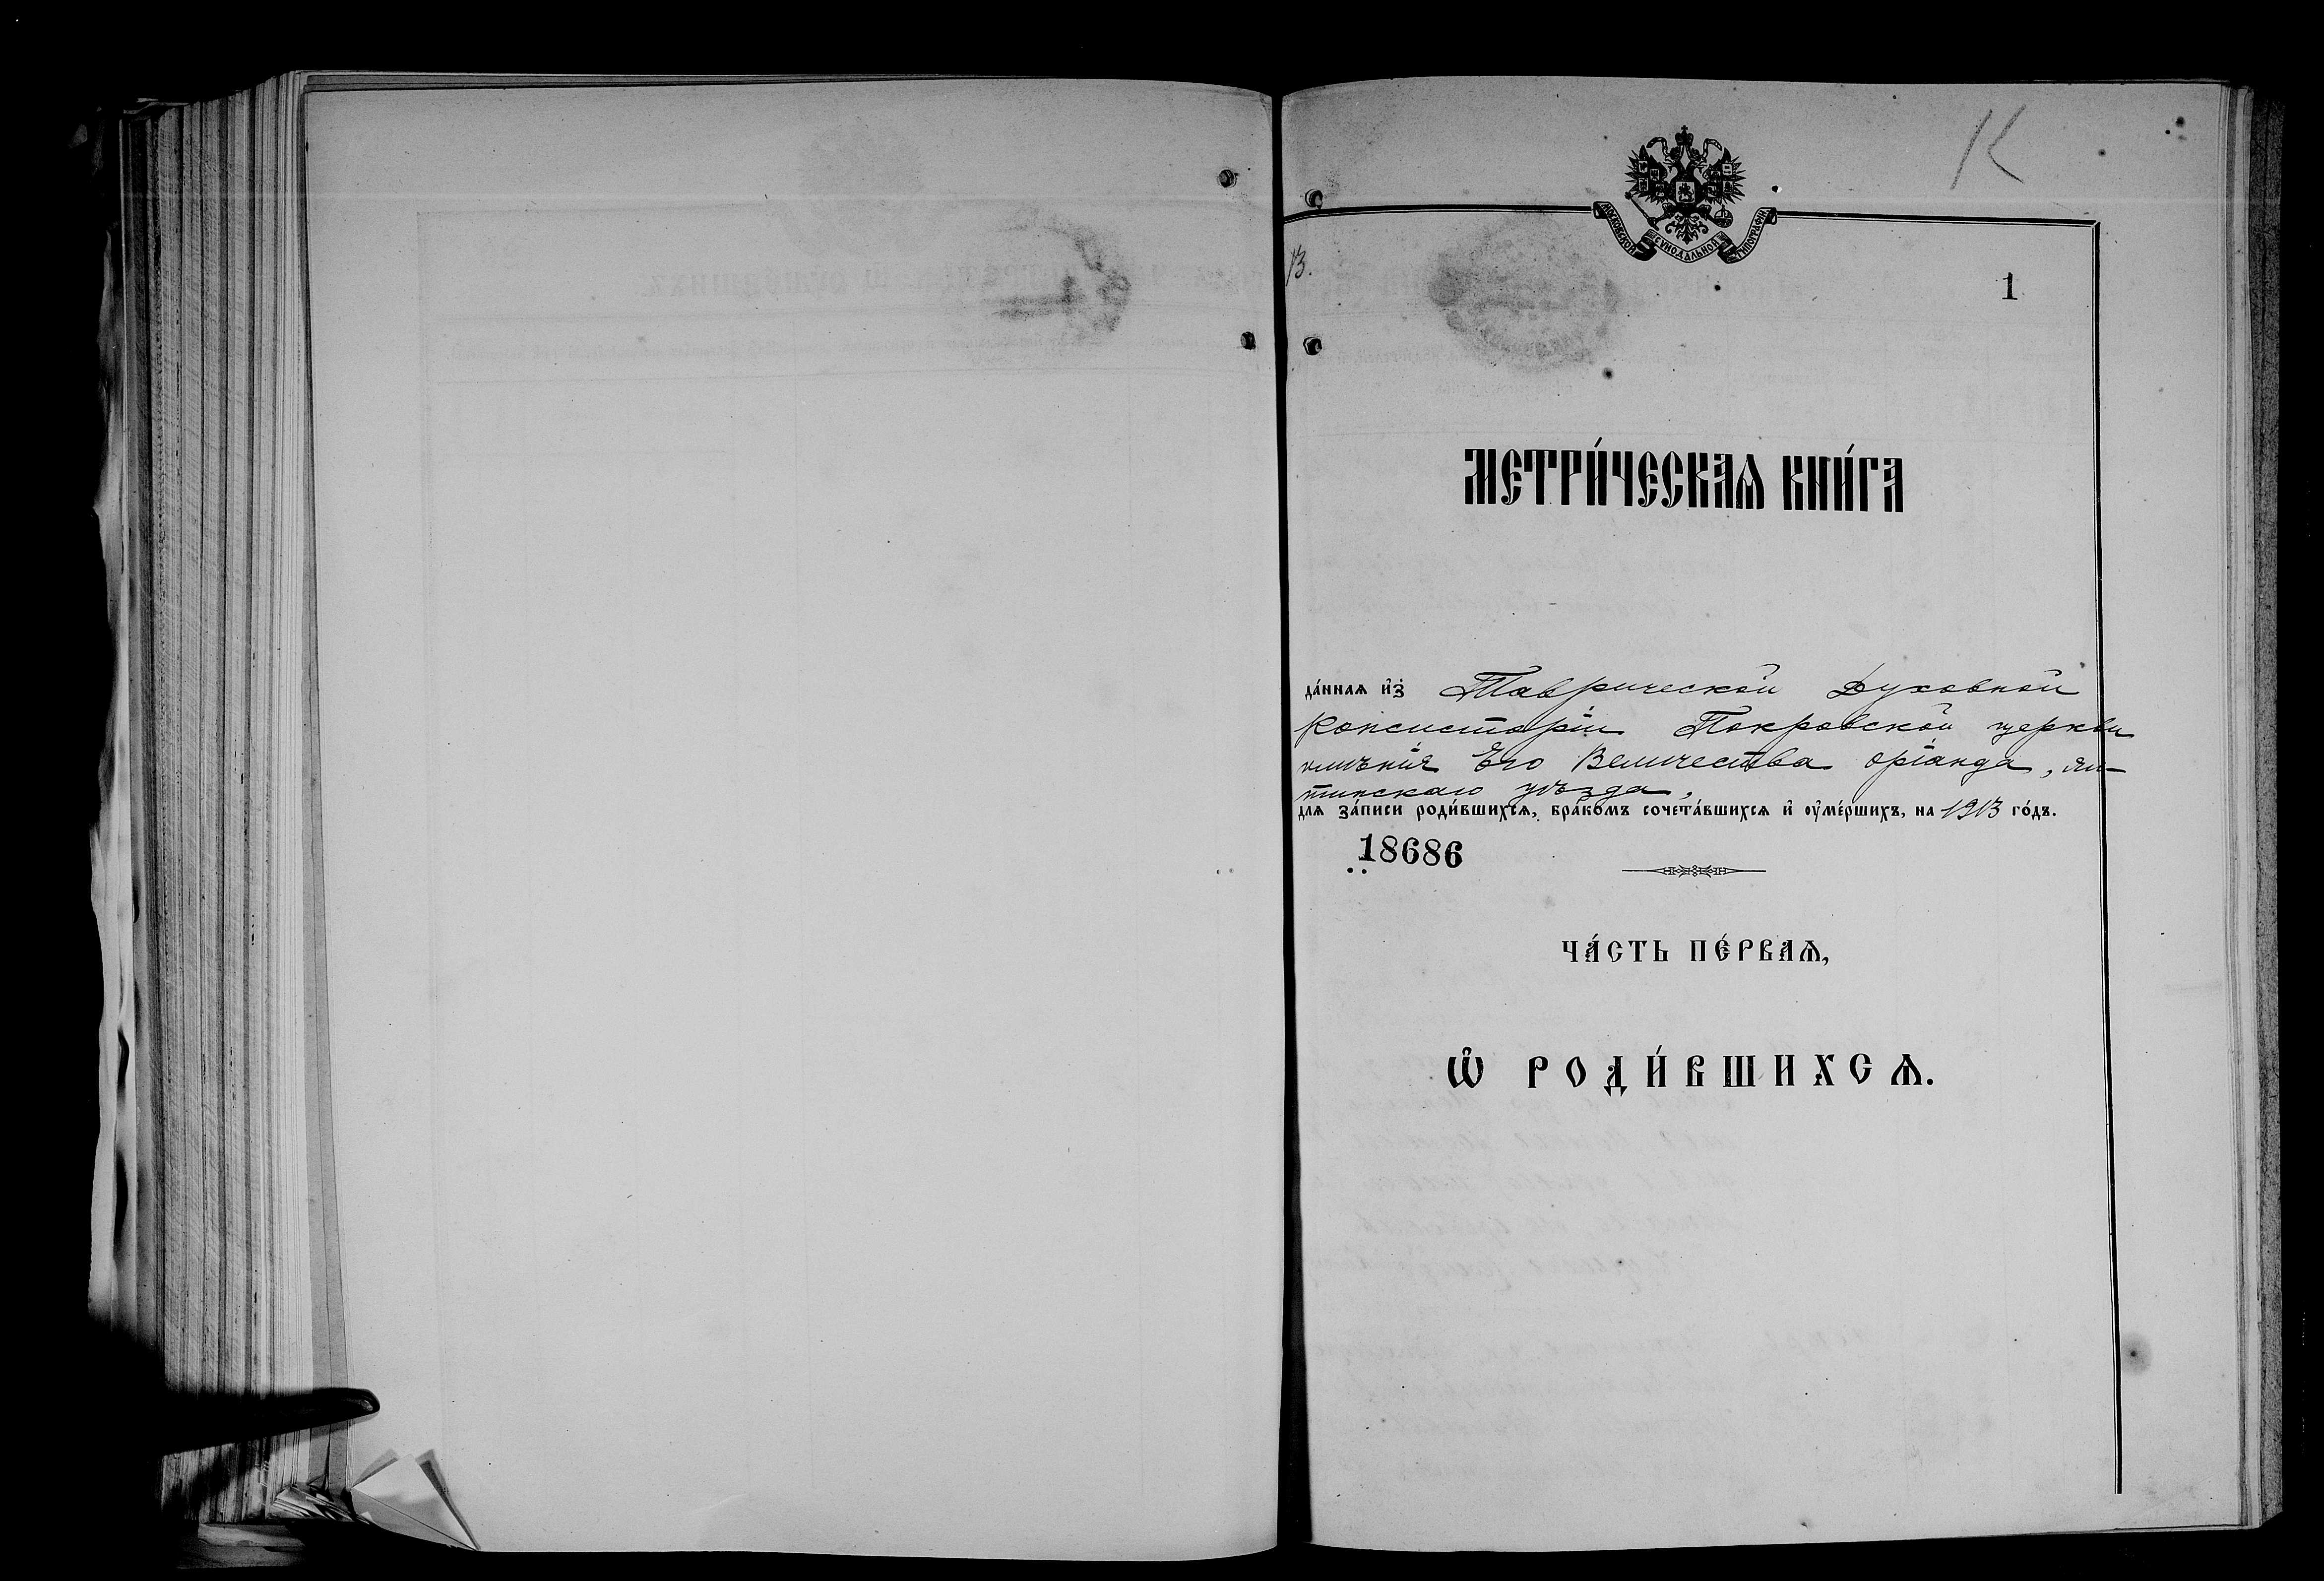 К
МОСКОВСКОЙ СѴНОДАЛЬНОЙ ТИПОГРАФІИ
13.
1
МЕТРИ́ЧЕСКАѦ КНИ́ГА
да́ннаѧ и҆з̾ Таврической Духовной
Консисторіи Покровской церкви
имѣнія Его Величества Оріанда, Ял-
тинскаго уѣзда,
длѧ за́писи роди́вшихсѧ, бра́комъ сочета́вшихсѧ и҆ ᲂу҆ме́ршихъ, на 1913 го́дъ.
18686
ЧА́СТЬ ПЕ́РВАѦ,
Ѽ РОДИ́ВШИХСѦ.